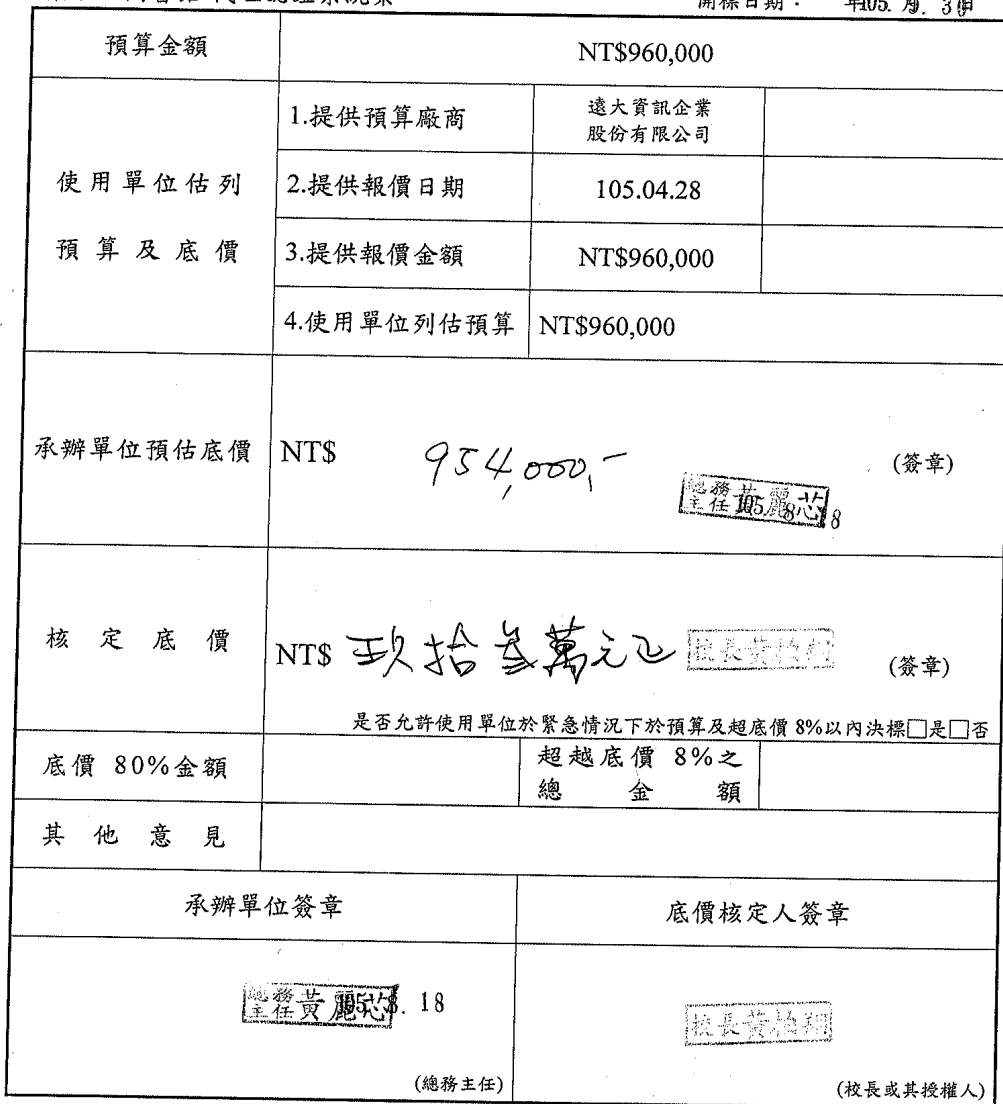 開標日期： 年105. 月9. 30日
預算金額 NT$960,000
使用單位估列
預算及底價
1.提供預算廠商 遠大資訊企業
股份有限公司
2.提供報價日期 105.04.28
3.提供報價金額 NT$960,000
4.使用單位列估預算 NT$960,000
承辦單位預估底價 NT$ 954,000,- (簽章)
總務
主任 黃麗芯 105. 8. 18
核定底價 NT$ 玖拾叁萬元正 校長黃柏翔 (簽章)
是否允許使用單位於緊急情況下於預算及超底價 8%以內決標□是□否
底價 80%金額 超越底價 8%之
總金額
其他意見
承辦單位簽章 底價核定人簽章
總務
主任 黃麗芯 105. 8. 18
校長黃柏翔
(總務主任) (校長或其授權人)